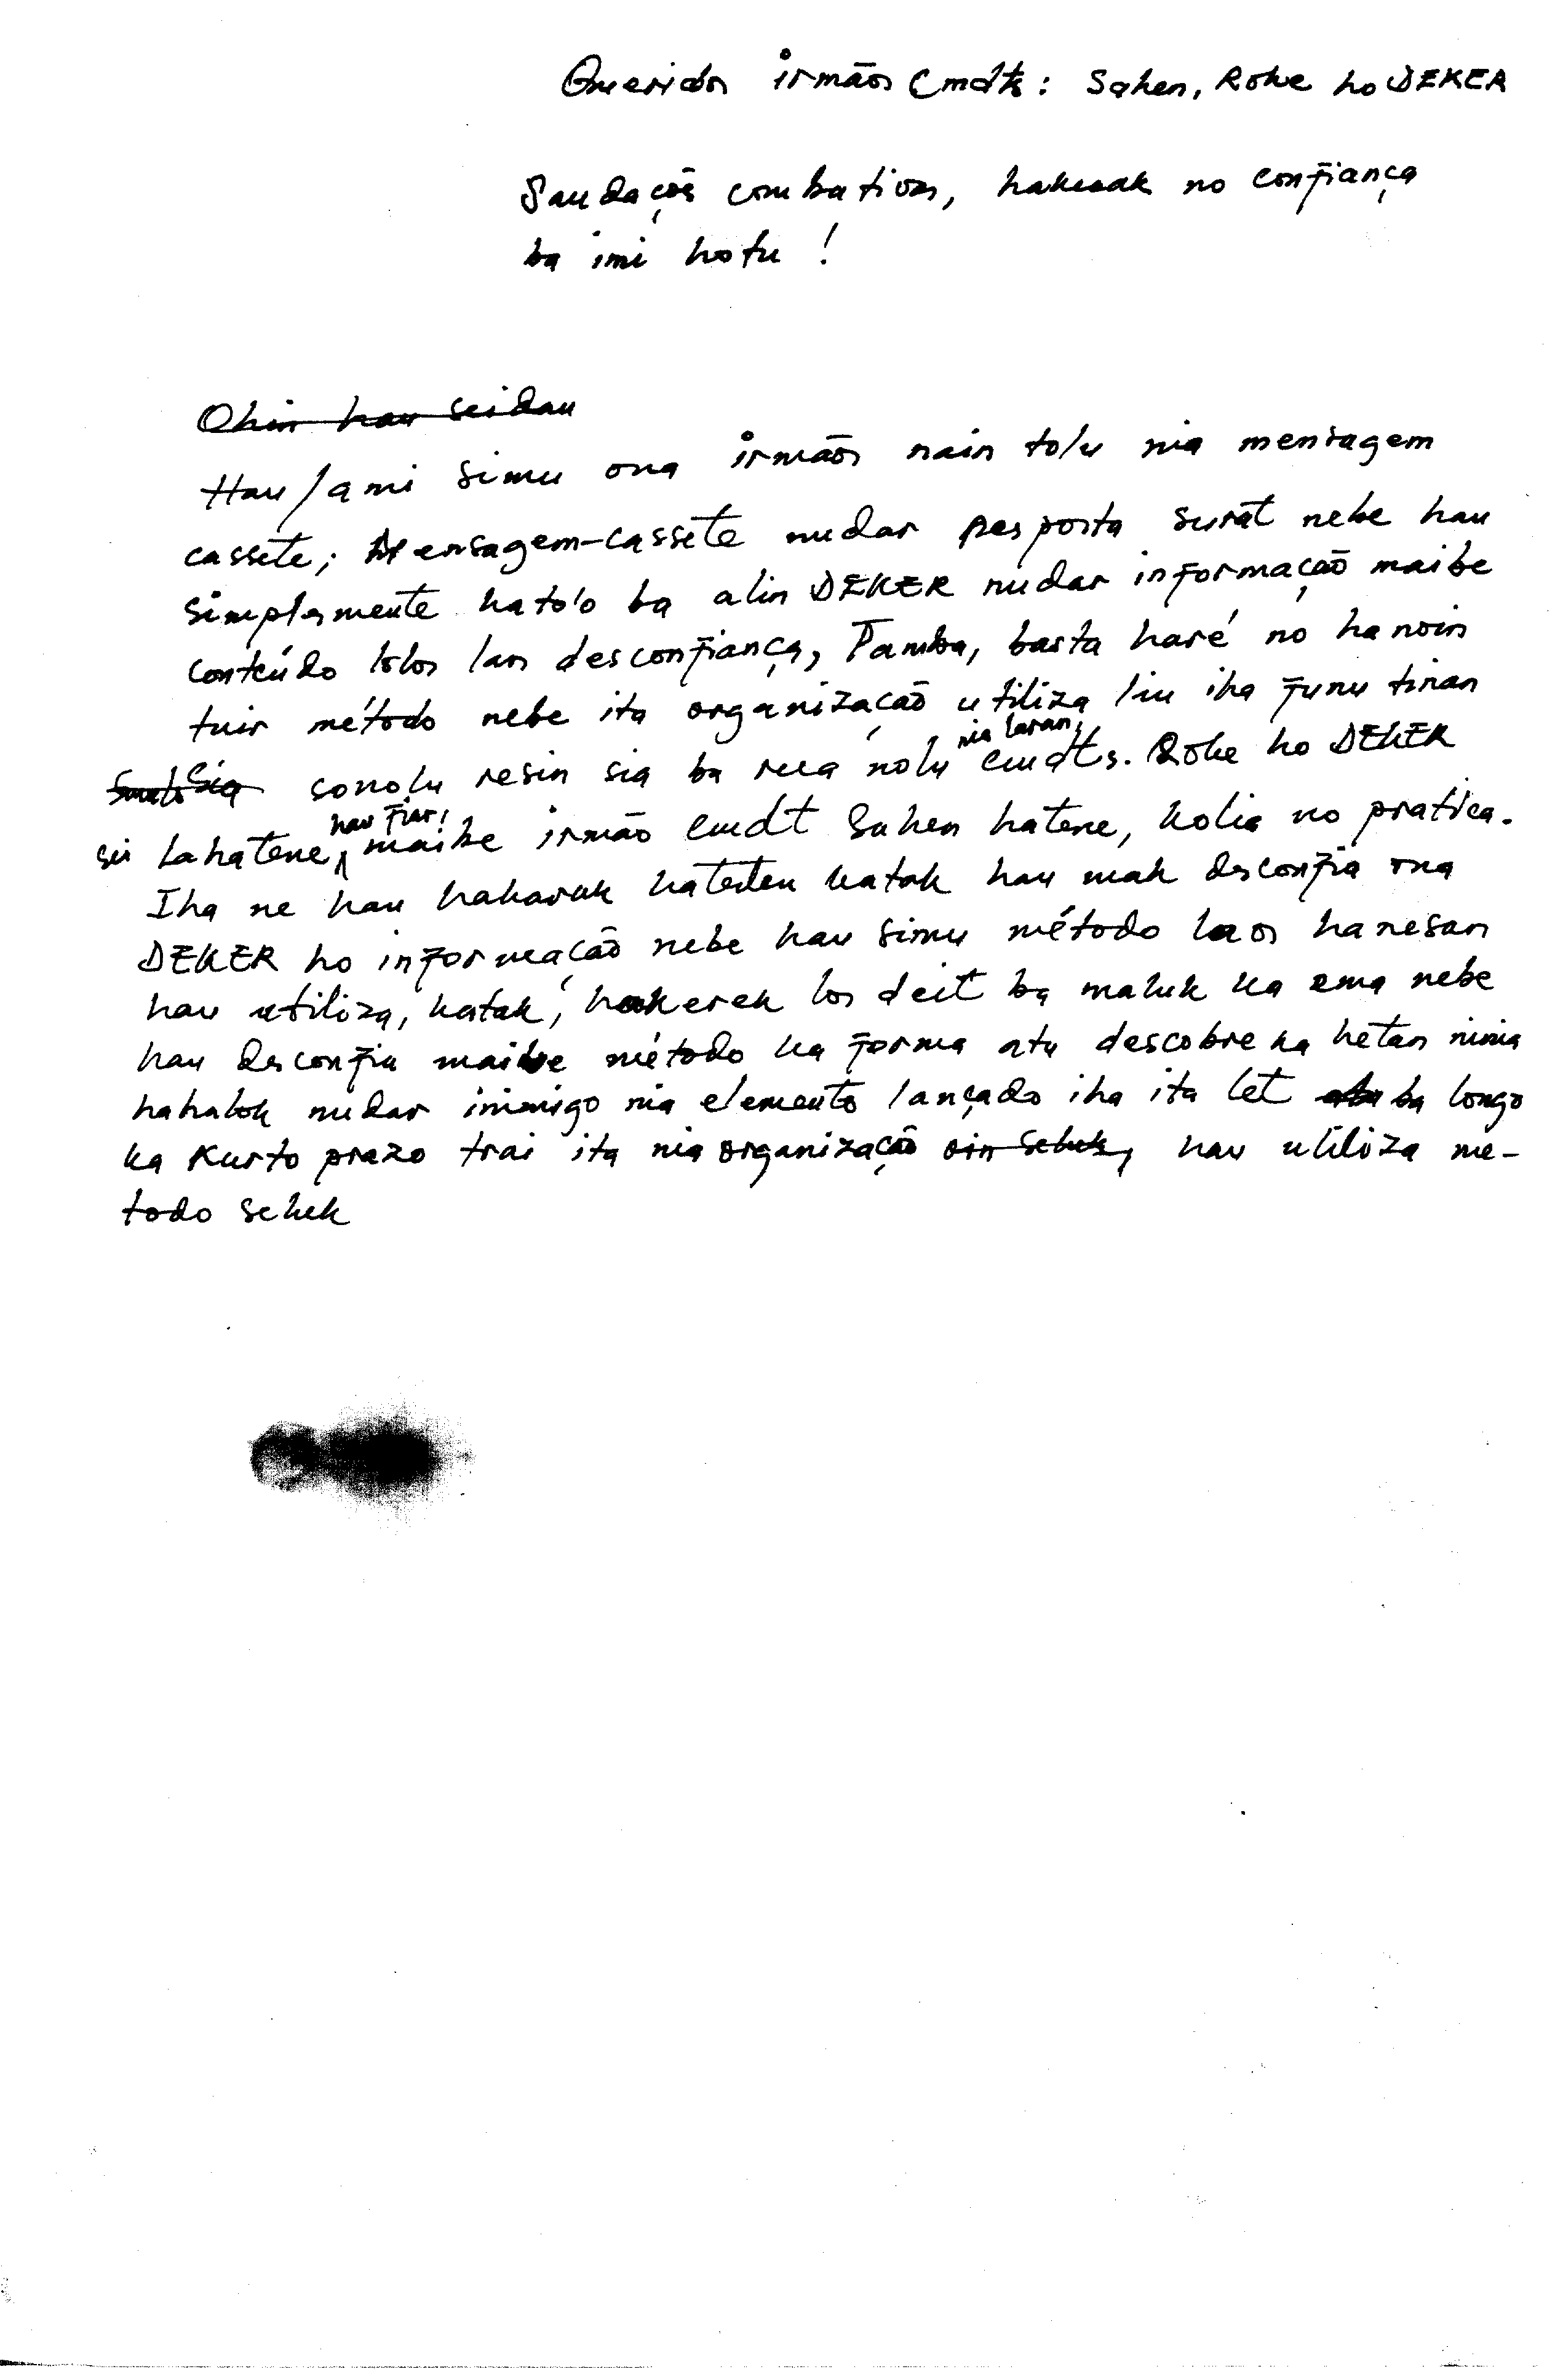 Queridos irmãos Cmdts: Sahen, Roke ho DEKER
Saudações combativas, hakuak no confiança
ba imi hotu!
Ohin hau seidau
Hau/ami simu ona irmãos nain tolu nia mensagem
cassete; Mensagem-cassete nudar resposta surat nebe hau
simplesmente hato'o ba alin DEKER nudar informação maibe
conteúdo lolos laos desconfiança, Tamba, basta haré no hanoin
tuir método nebe ita organização utiliza liu iha funu tinan
sia sanolu resin sia ba rua nolu nia laran, cmdts. Roke ho DEKER
sei lahatene, hau fiar! maibe irmão cmdt Sahen hatene, kolia no pratica.
Iha ne hau hakarak hateten katak hau mak desconfia ona
DEKER ho informação nebe hau simu método laos hanesan
hau utiliza, katak, hakerek los deit ba maluk ka ema nebe
hau desconfia maibe método ka forma atu descobre ka hetan ninia
hahalok nudar inimigo nia elemento lançado iha ita let ba longo
ka Kurto prazo trai ita nia organização oin seluk, hau utiliza me-
todo seluk